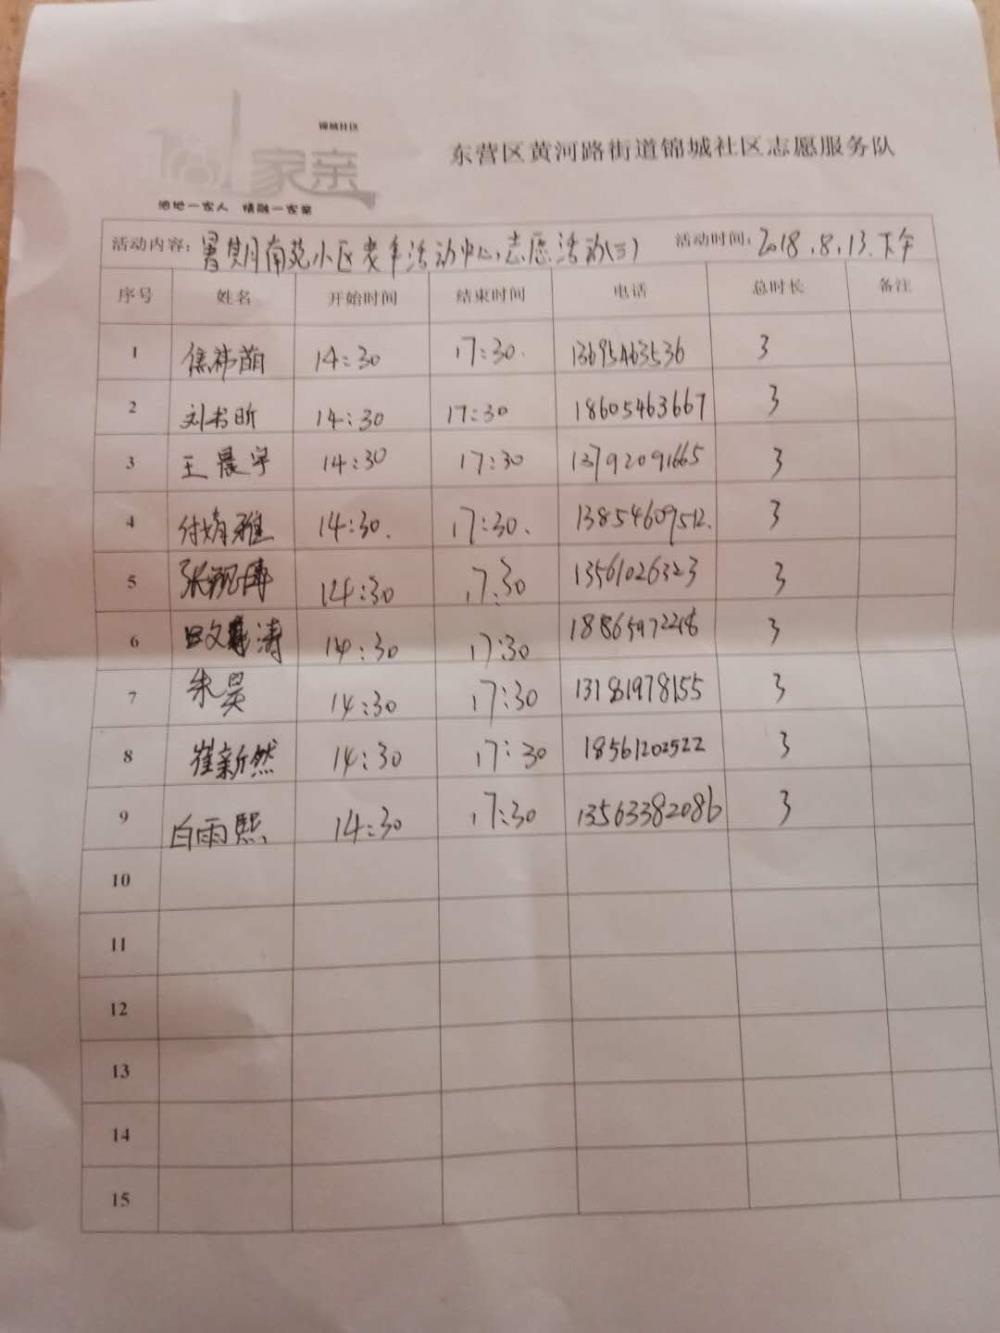 锦城社区
家亲
油地一家人 情融一家亲
东营区黄河路街道锦城社区志愿服务队
活动内容：暑期南苑小区老年活动中心志愿活动(三) 活动时间：2018.8.13.下午
序号 姓名 开始时间 结束时间 电话 总时长 备注
1 14:30 17:30. 13695463536 3
2 刘书昕 14:30 17:30 18605463667 3
3 王晨宇 14:30 17:30 13792091665 3
4 付婧雅 14:30. 17:30. 13854609512. 3
5 14:30 17:30 13561026323 3
6 14:30 17:30 3
7 朱昊 14:30 17:30 13181978155 3
8 崔新然 14:30 17:30 18561202522 3
9 白雨熙 14:30 17:30 13563382086 3
10
11
12
13
14
15